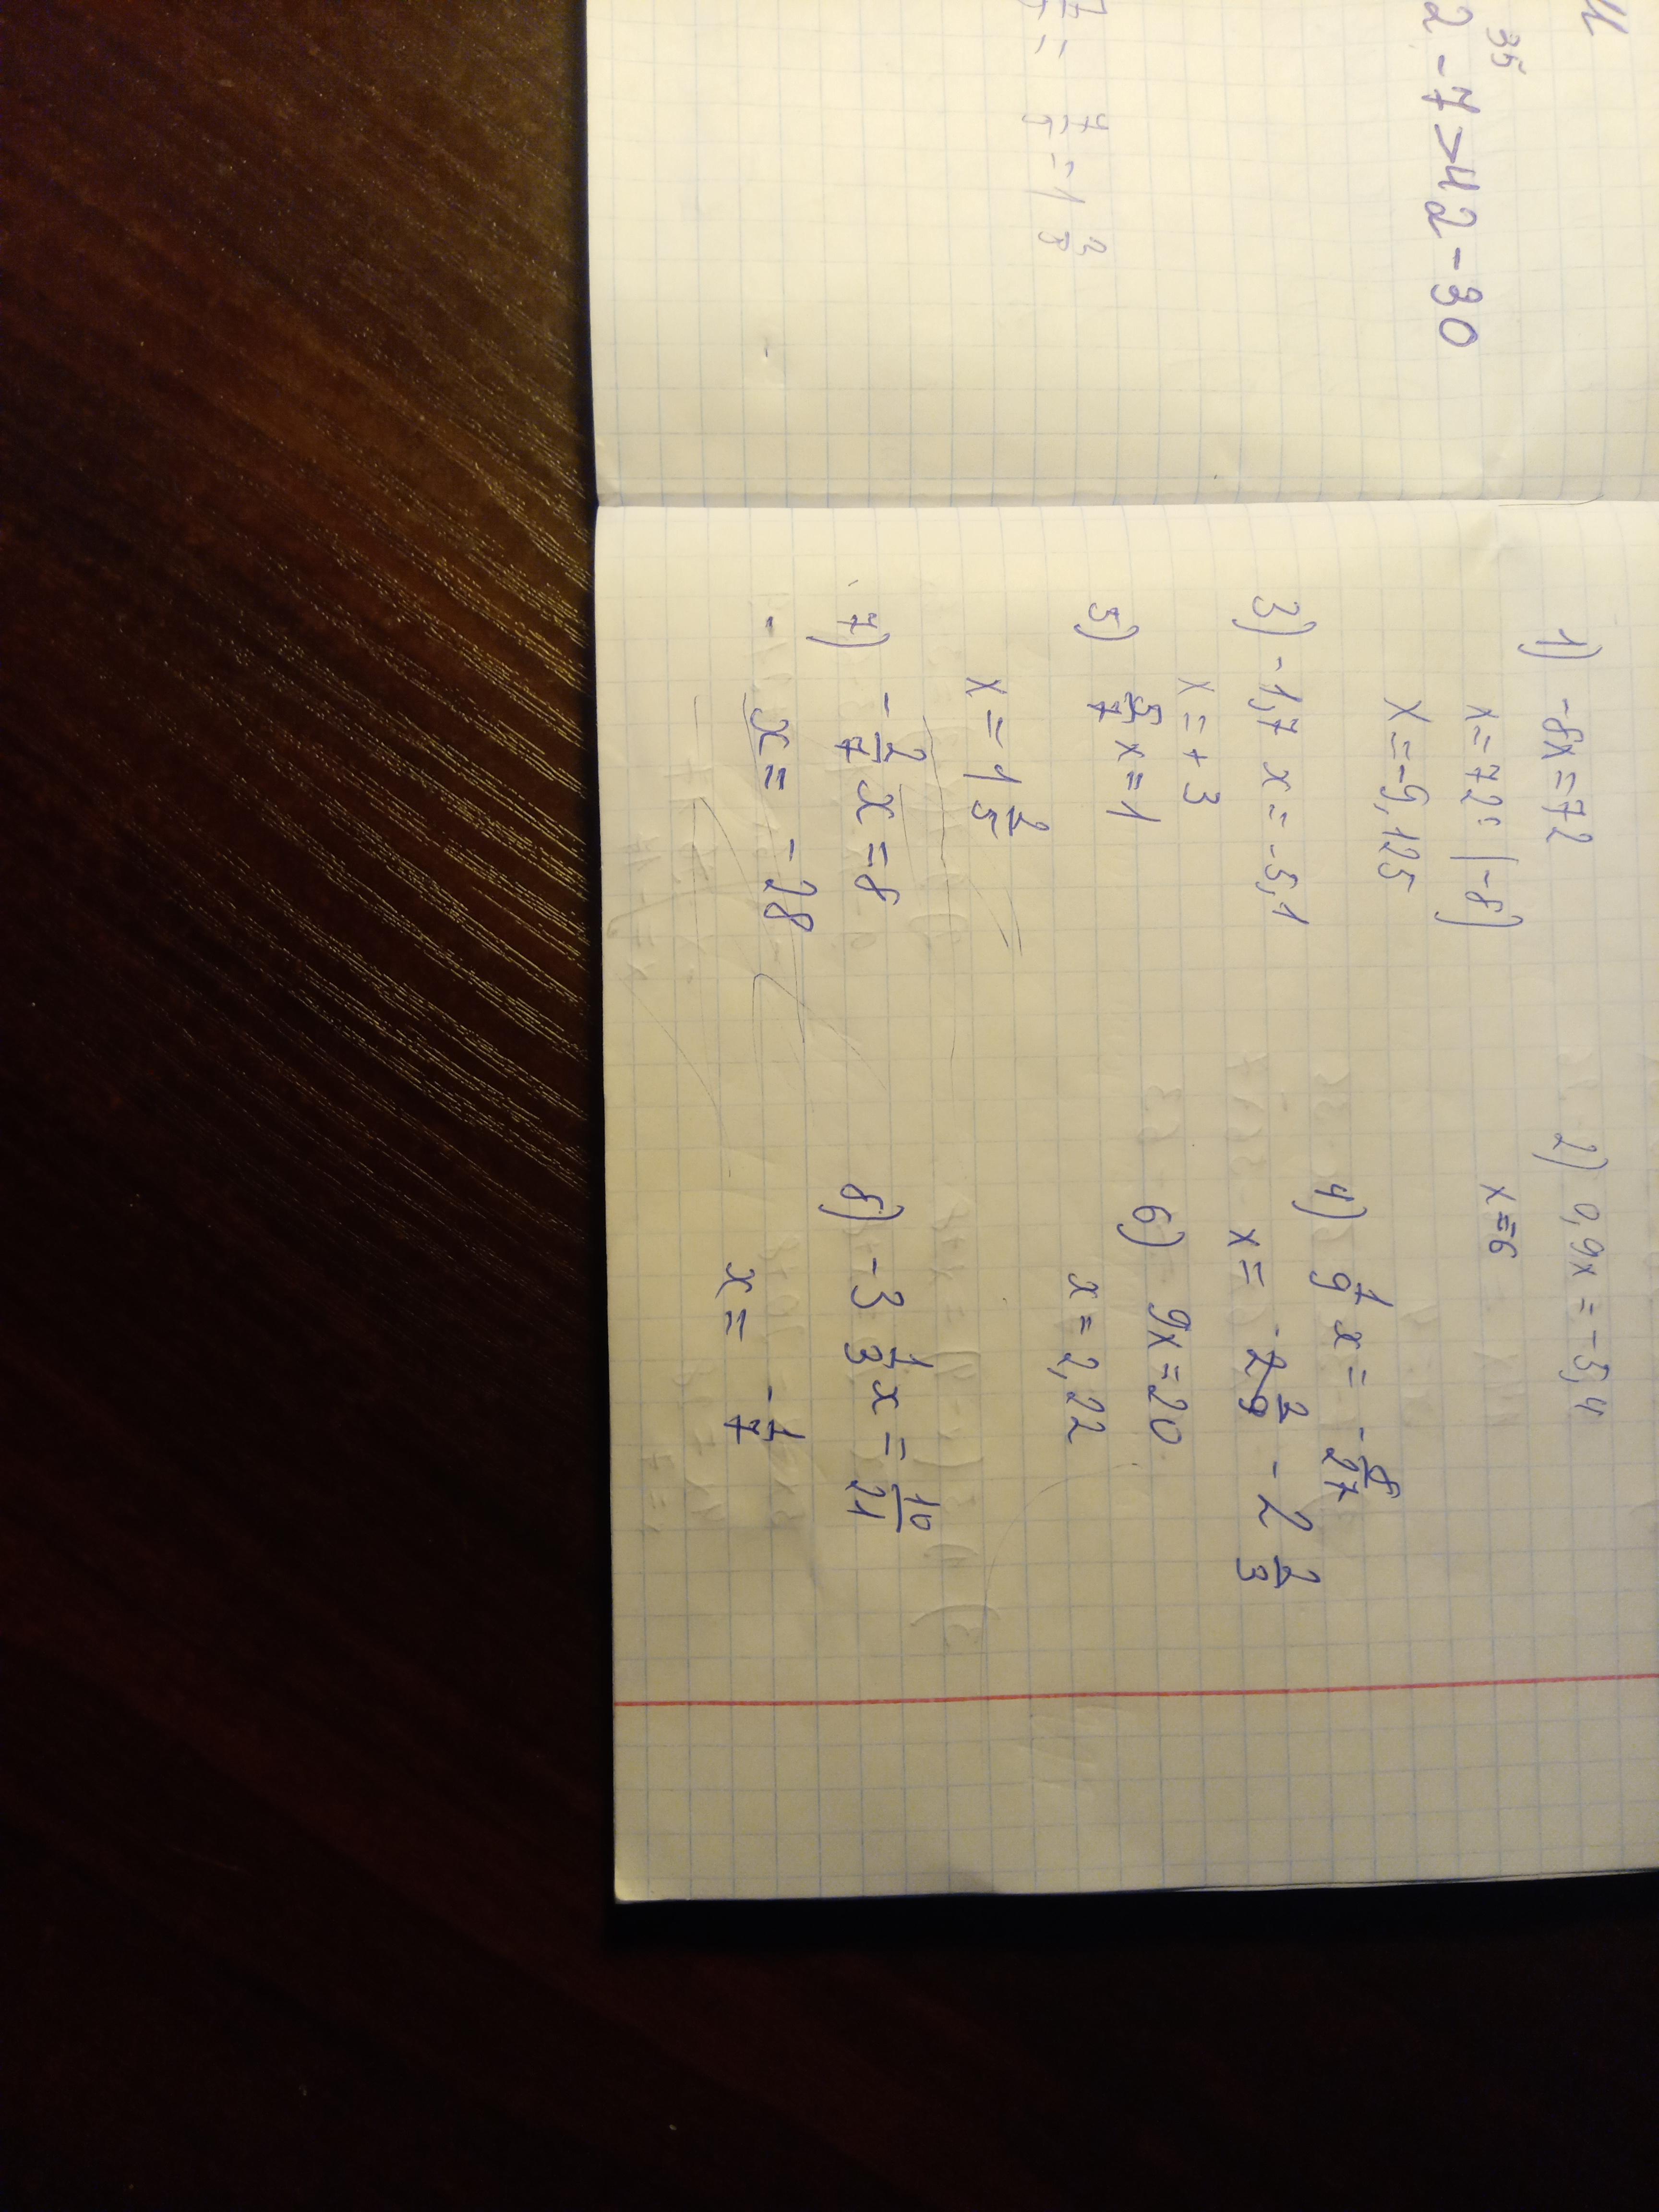 35
2 - 7 > 42 - 30
7/5 = 1 2/5
1) -8x = 72
x = 72 : (-8)
x = -9,125
2) 0,9x = -5,4
x = 6
3) -1,7x = -5,1
x = +3
4) 1/9 x = -8/27
x = -2 2/9 - 2 2/3
5) 5/7 x = 1
x = 1 2/5
6) 9x = 20
x = 2,22
7) -2/7 x = 8
x = -28
8) -3 1/3 x = 10/21
x = -1/7